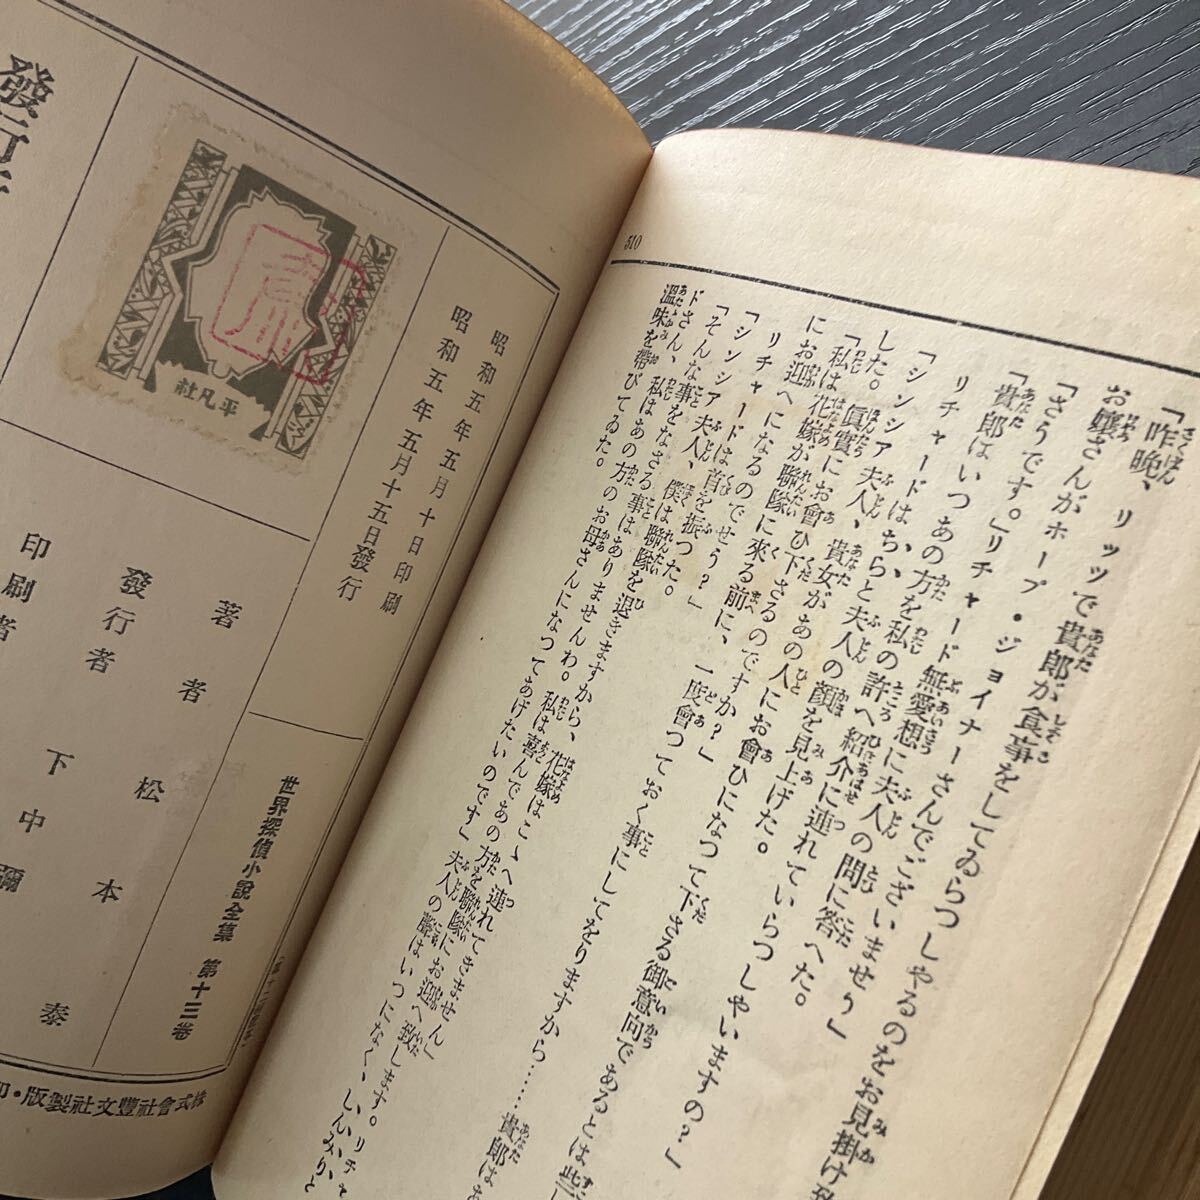 510
「昨晩、リッツで貴郎が食事をしてゐらつしやるのをお見掛け致
お孃さんがホープ・ジョイナーさんでございませう」
「さうです。」リチャード無愛想に夫人の問に答へた。
「貴郎はいつあの方を私の許へ紹介に連れていらつしやいますの？」
リチャードはちらと夫人の顏を見上げた。
「シンシア夫人、貴女があの人にお會ひになつて下さる御意向であるとは些
した。眞實にお會ひ下さるのですか？」
「私は花嫁が聯隊に來る前に、一度會つておく事にしてをりますから……貴郎はお
にお迎へになるのでせう？」
リチャードは首を振つた。
「シンシア夫人、僕は聯隊を退きますから、花嫁はこゝへ連れてきません」
「そんな事をなさる事はありませんわ。私は喜んであの方を聯隊にお迎へ致します。リチャ
ドさん、私はあの方のお母さんになつてあげたいのです」夫人の聲はいつになく、しんみりと
溫味を帶びてゐた。
發行者
平凡社
昭和五年五月十日印刷
昭和五年五月十五日發行
世界探偵小說全集 第十三卷
著者 松本泰
發行者 下中彌
印刷者
株式會社豐文社製版・印